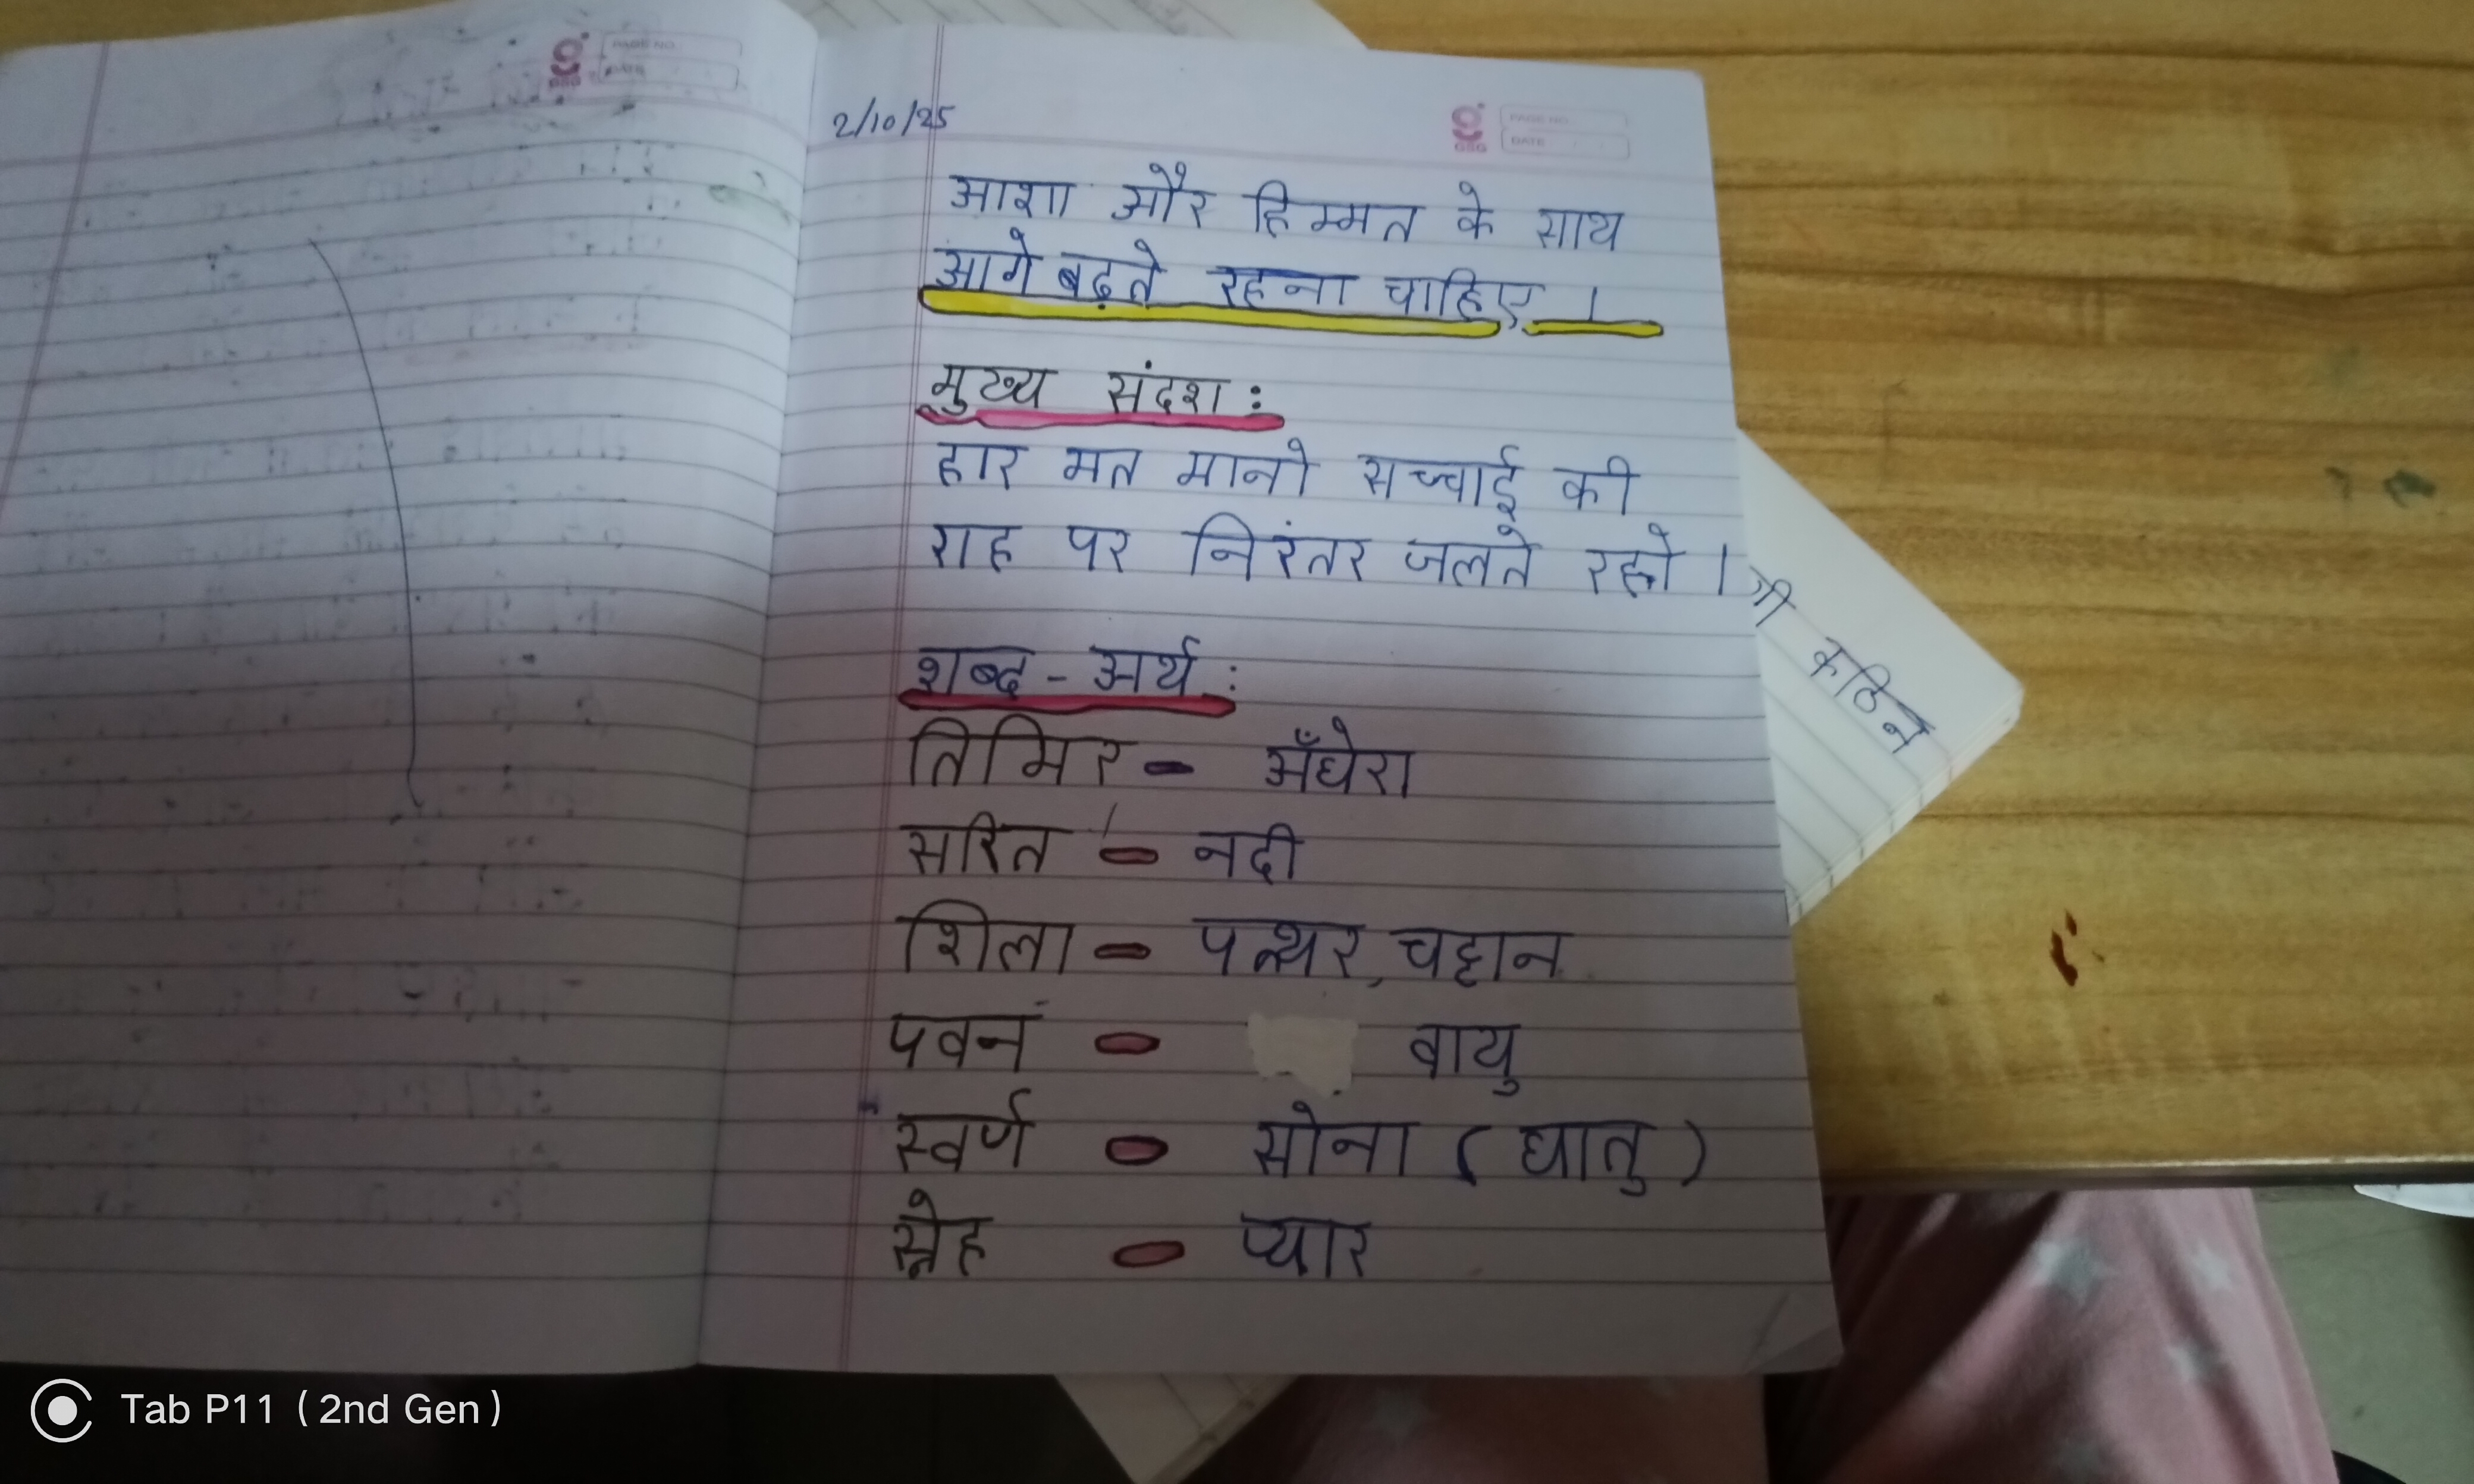 PAGE NO.
DATE
GSG
2/10/25
GSG
PAGE NO.
DATE
आशा और हिम्मत के साथ
आगे बढ़ते रहना चाहिए ।
मुख्य संदश :
हार मत मानो सच्चाई की
राह पर निरंतर जलते रहो ।
शब्द - अर्थ :
तिमिर - अँधेरा
सरित - नदी
शिला - पत्थर, चट्टान
पवन - वायु
स्वर्ण - सोना ( धातु )
स्नेह - प्यार
कठिन
Tab P11 ( 2nd Gen )